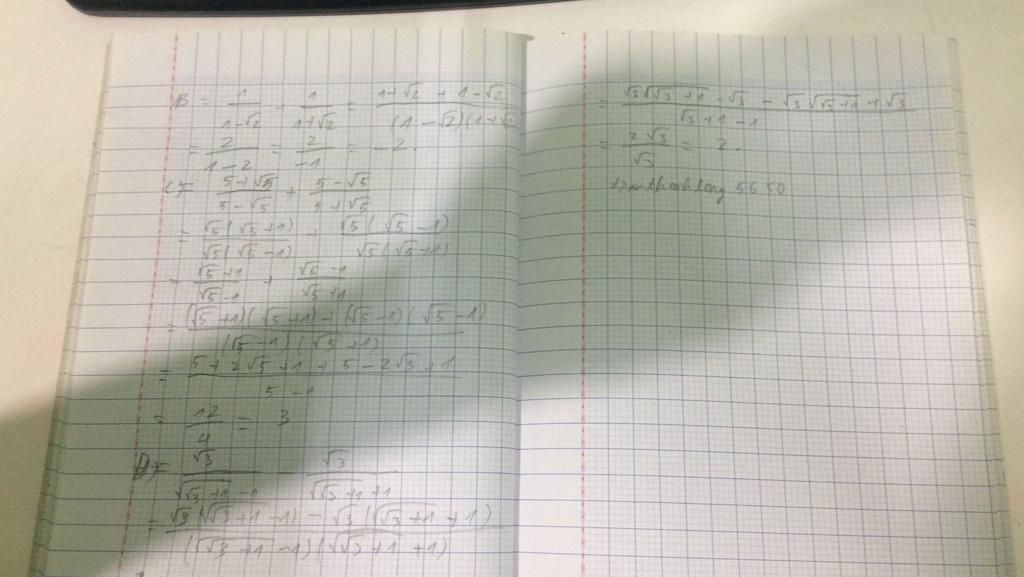 B = 1/(1-√2) + 1/(1+√2) = (1+√2 + 1-√2)/((1-√2)(1+√2
= 2/(1-2) = 2/(-1) = -2.
C) = (5+√5)/(5-√5) + (5-√5)/(5+√5)
= √5(√5+1)/(√5(√5-1)) + √5(√5-1)/(√5(√5+1))
= (√5+1)/(√5-1) + (√5-1)/(√5+1)
= ((√5+1)(√5+1)+(√5-1)(√5-1))/((√5-1)(√5+1))
= (5+2√5+1+5-2√5+1)/(5-1)
= 12/4 = 3
D) = √3/(√(√3+1)-1) - √3/(√(√3+1)+1)
= (√3(√(√3+1)-1) - √3(√(√3+1)+1))/((√(√3+1)-1)(√(√3+1)+1))
= (√3√(√3+1)-√3 - √3√(√3+1)+√3)/(√3+1-1)
= 2√3/√3 = 2.
5650